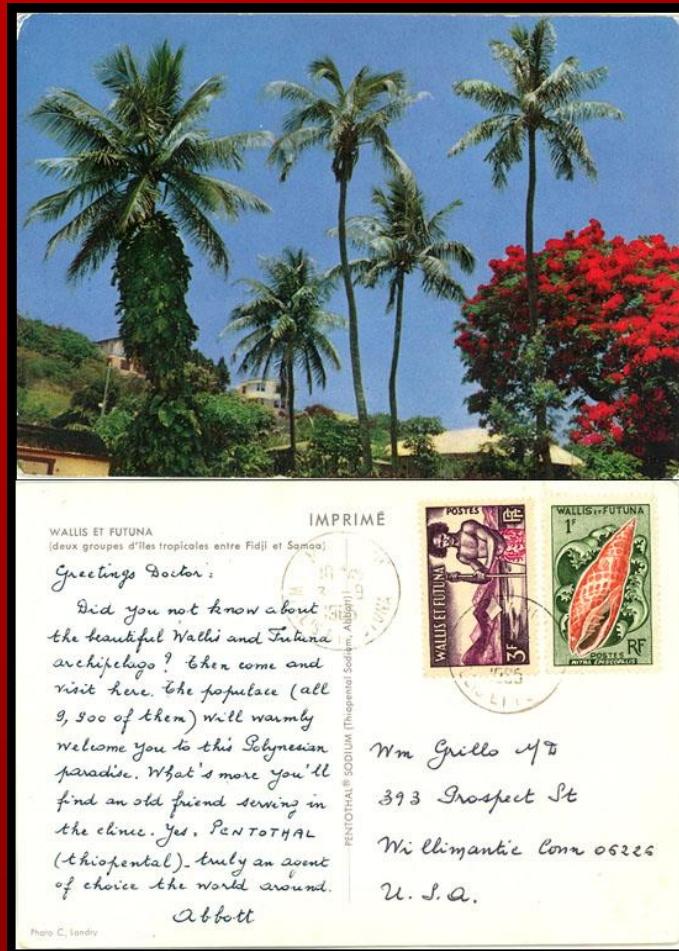 WALLIS ET FUTUNA
(deux groupes d'îles tropicales entre Fidji et Samoa)
IMPRIMÉ
Greetings Doctor:
Did you not know about
the beautiful Wallis and Futuna
archipelago? Then come and
visit here. The populace (all
9,900 of them) will warmly
welcome you to this Polynesian
paradise. What's more you'll
find an old friend serving in
the clinic. Yes, PENTOTHAL
(thiopental) - truly an agent
of choice the world around.
Abbott
Photo C. Landry
PENTOTHAL® SODIUM (Thiopental Sodium, Abbott)
POSTES RF
WALLIS ET FUTUNA
3F
WALLIS ET FUTUNA
1F
RF
POSTES
MITRA EPISCOPALIS
Wm Grillo MD
393 Prospect St
Willimantic Conn 06226
U.S.A.